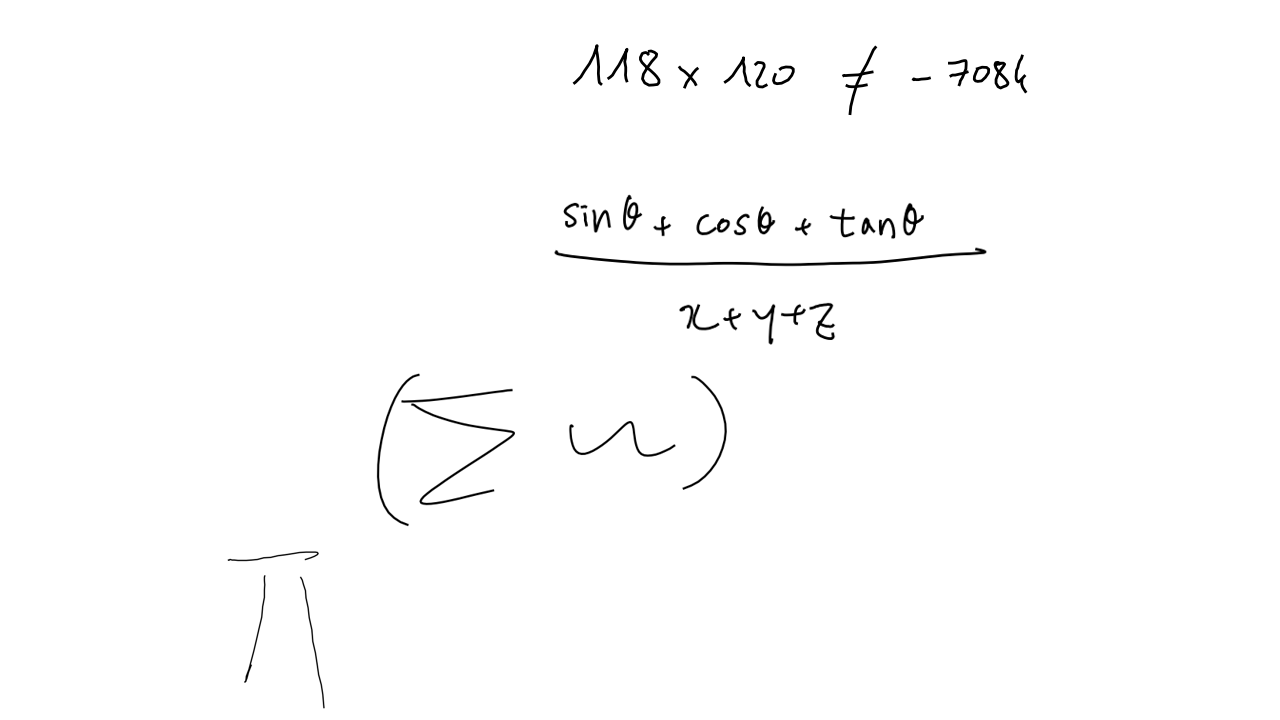 118 × 120 ≠ - 7084
sinθ + cosθ + tanθ
x + y + z
(∑ n)
π